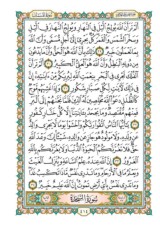 سورة لقمان
ألم تر أن الله يولج الليل في النهار ويولج النهار في الليل
وسخر الشمس والقمر كل يجري إلى أجل مسمى وأن الله
بما تعملون خبير ذلك بأن الله هو الحق وأن ما يدعون
من دونه الباطل وأن الله هو العلي الكبير ألم تر أن
الفلك تجري في البحر بنعمت الله ليريكم من آياته إن في ذلك
لآيات لكل صبار شكور وإذا غشيهم موج
كالظلل دعوا الله مخلصين له الدين فلما نجاهم إلى البر
فمنهم مقتصد وما يجحد بآياتنا إلا كل ختار كفور
يا أيها الناس اتقوا ربكم واخشوا يوما لا يجزي
والد عن ولده ولا مولود هو جاز عن والده شيئا إن
وعد الله حق فلا تغرنكم الحياة الدنيا ولا يغرنكم
بالله الغرور إن الله عنده علم الساعة وينزل الغيث
ويعلم ما في الأرحام وما تدري نفس ماذا تكسب غدا
وما تدري نفس بأي أرض تموت إن الله عليم خبير
سورة السجدة
٤١٤